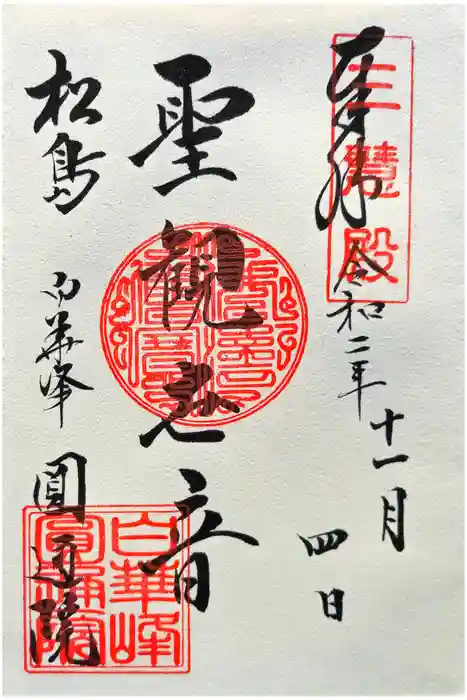 奉拝
三慧殿
令和二年
十一月
四日
聖観世音
松島
白華峰
圓通院
白華峰
圓通院